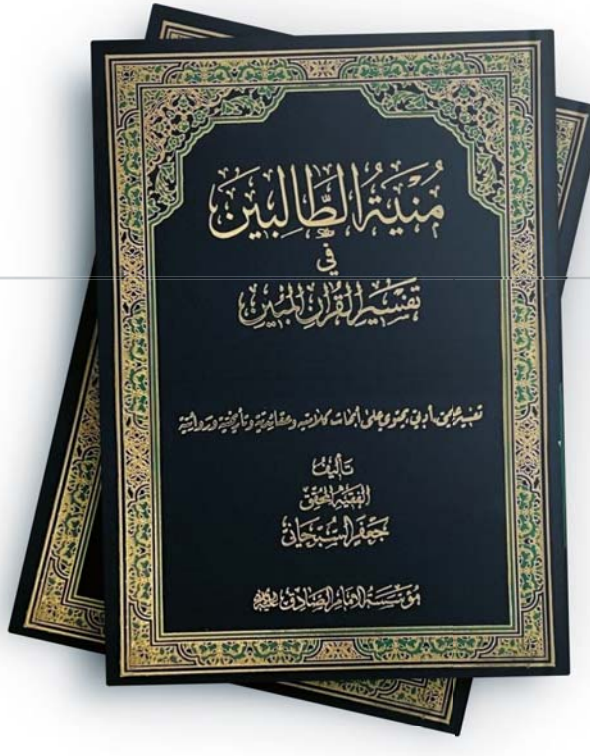 مُنْيَةُ الطَّالِبِين
في
تَفْسِيرِ القُرآنِ المُبِين
تفسير علمي، أدبي يحتوي على أبحاث كلامية وعقائدية وتأريخية وروائية
تأليف
الفقيه المحقق
جعفر السبحاني
مؤسسة الإمام الصادق